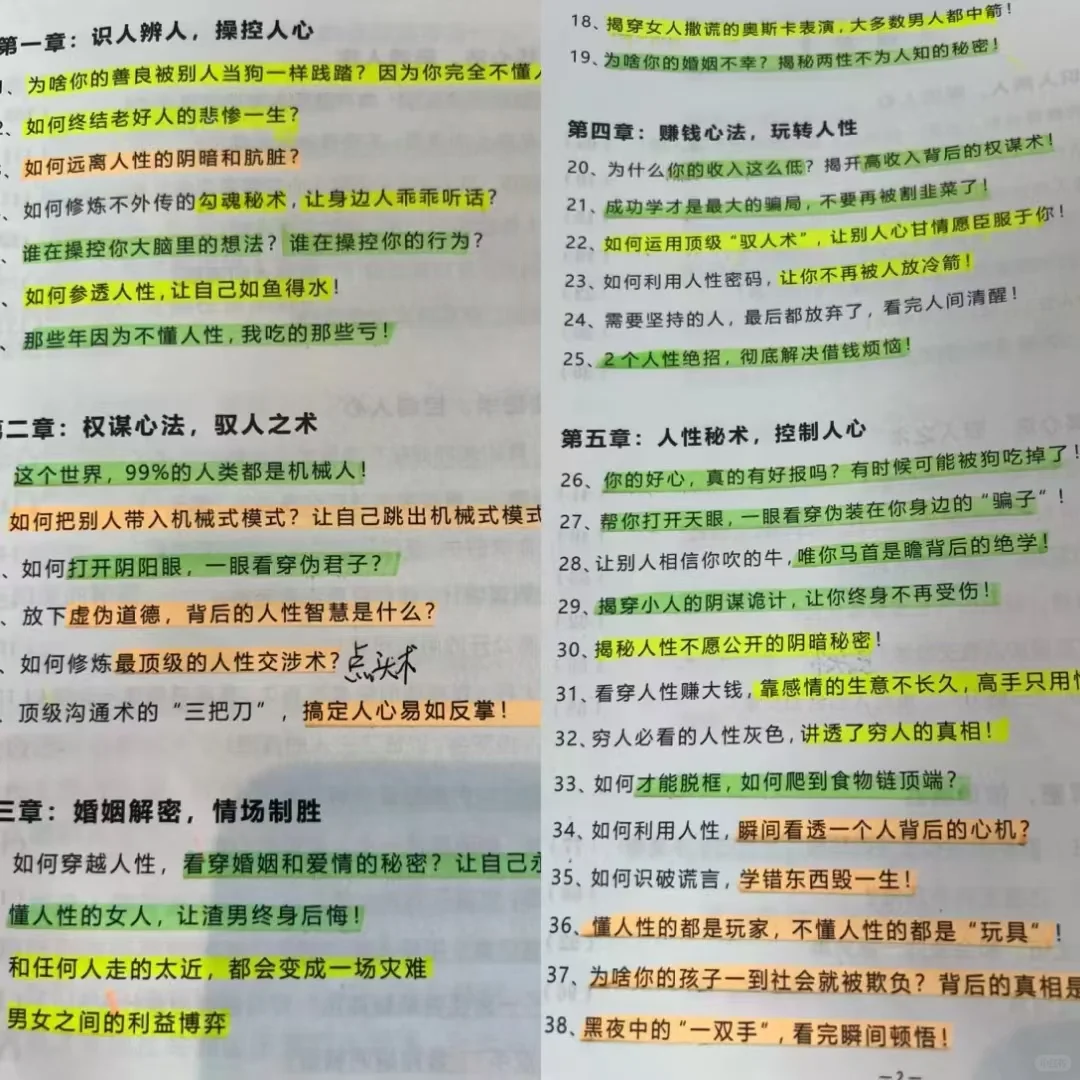 第一章：识人辨人，操控人心
、为啥你的善良被别人当狗一样践踏？因为你完全不懂
、如何终结老好人的悲惨一生？
、如何远离人性的阴暗和肮脏？
、如何修炼不外传的勾魂秘术，让身边人乖乖听话？
、谁在操控你大脑里的想法？谁在操控你的行为？
、如何参透人性，让自己如鱼得水！
、那些年因为不懂人性，我吃的那些亏！
第二章：权谋心法，驭人之术
这个世界，99%的人类都是机械人！
如何把别人带入机械式模式？让自己跳出机械式模式
、如何打开阴阳眼，一眼看穿伪君子？
、放下虚伪道德，背后的人性智慧是什么？
、如何修炼最顶级的人性交涉术？点头术
、顶级沟通术的“三把刀”，搞定人心易如反掌！
三章：婚姻解密，情场制胜
如何穿越人性，看穿婚姻和爱情的秘密？让自己永
懂人性的女人，让渣男终身后悔！
和任何人走的太近，都会变成一场灾难
男女之间的利益博弈
18、揭穿女人撒谎的奥斯卡表演，大多数男人都中箭！
19、为啥你的婚姻不幸？揭秘两性不为人知的秘密！
第四章：赚钱心法，玩转人性
20、为什么你的收入这么低？揭开高收入背后的权谋术！
21、成功学才是最大的骗局，不要再被割韭菜了！
22、如何运用顶级“驭人术”，让别人心甘情愿臣服于你！
23、如何利用人性密码，让你不再被人放冷箭！
24、需要坚持的人，最后都放弃了，看完人间清醒！
25、2个人性绝招，彻底解决借钱烦恼！
第五章：人性秘术，控制人心
26、你的好心，真的有好报吗？有时候可能被狗吃掉了！
27、帮你打开天眼，一眼看穿伪装在你身边的“骗子”！
28、让别人相信你吹的牛，唯你马首是瞻背后的绝学！
29、揭穿小人的阴谋诡计，让你终身不再受伤！
30、揭秘人性不愿公开的阴暗秘密！
31、看穿人性赚大钱，靠感情的生意不长久，高手只用
32、穷人必看的人性灰色，讲透了穷人的真相！
33、如何才能脱框，如何爬到食物链顶端？
34、如何利用人性，瞬间看透一个人背后的心机？
35、如何识破谎言，学错东西毁一生！
36、懂人性的都是玩家，不懂人性的都是“玩具”！
37、为啥你的孩子一到社会就被欺负？背后的真相是
38、黑夜中的“一双手”，看完瞬间顿悟！
—2—